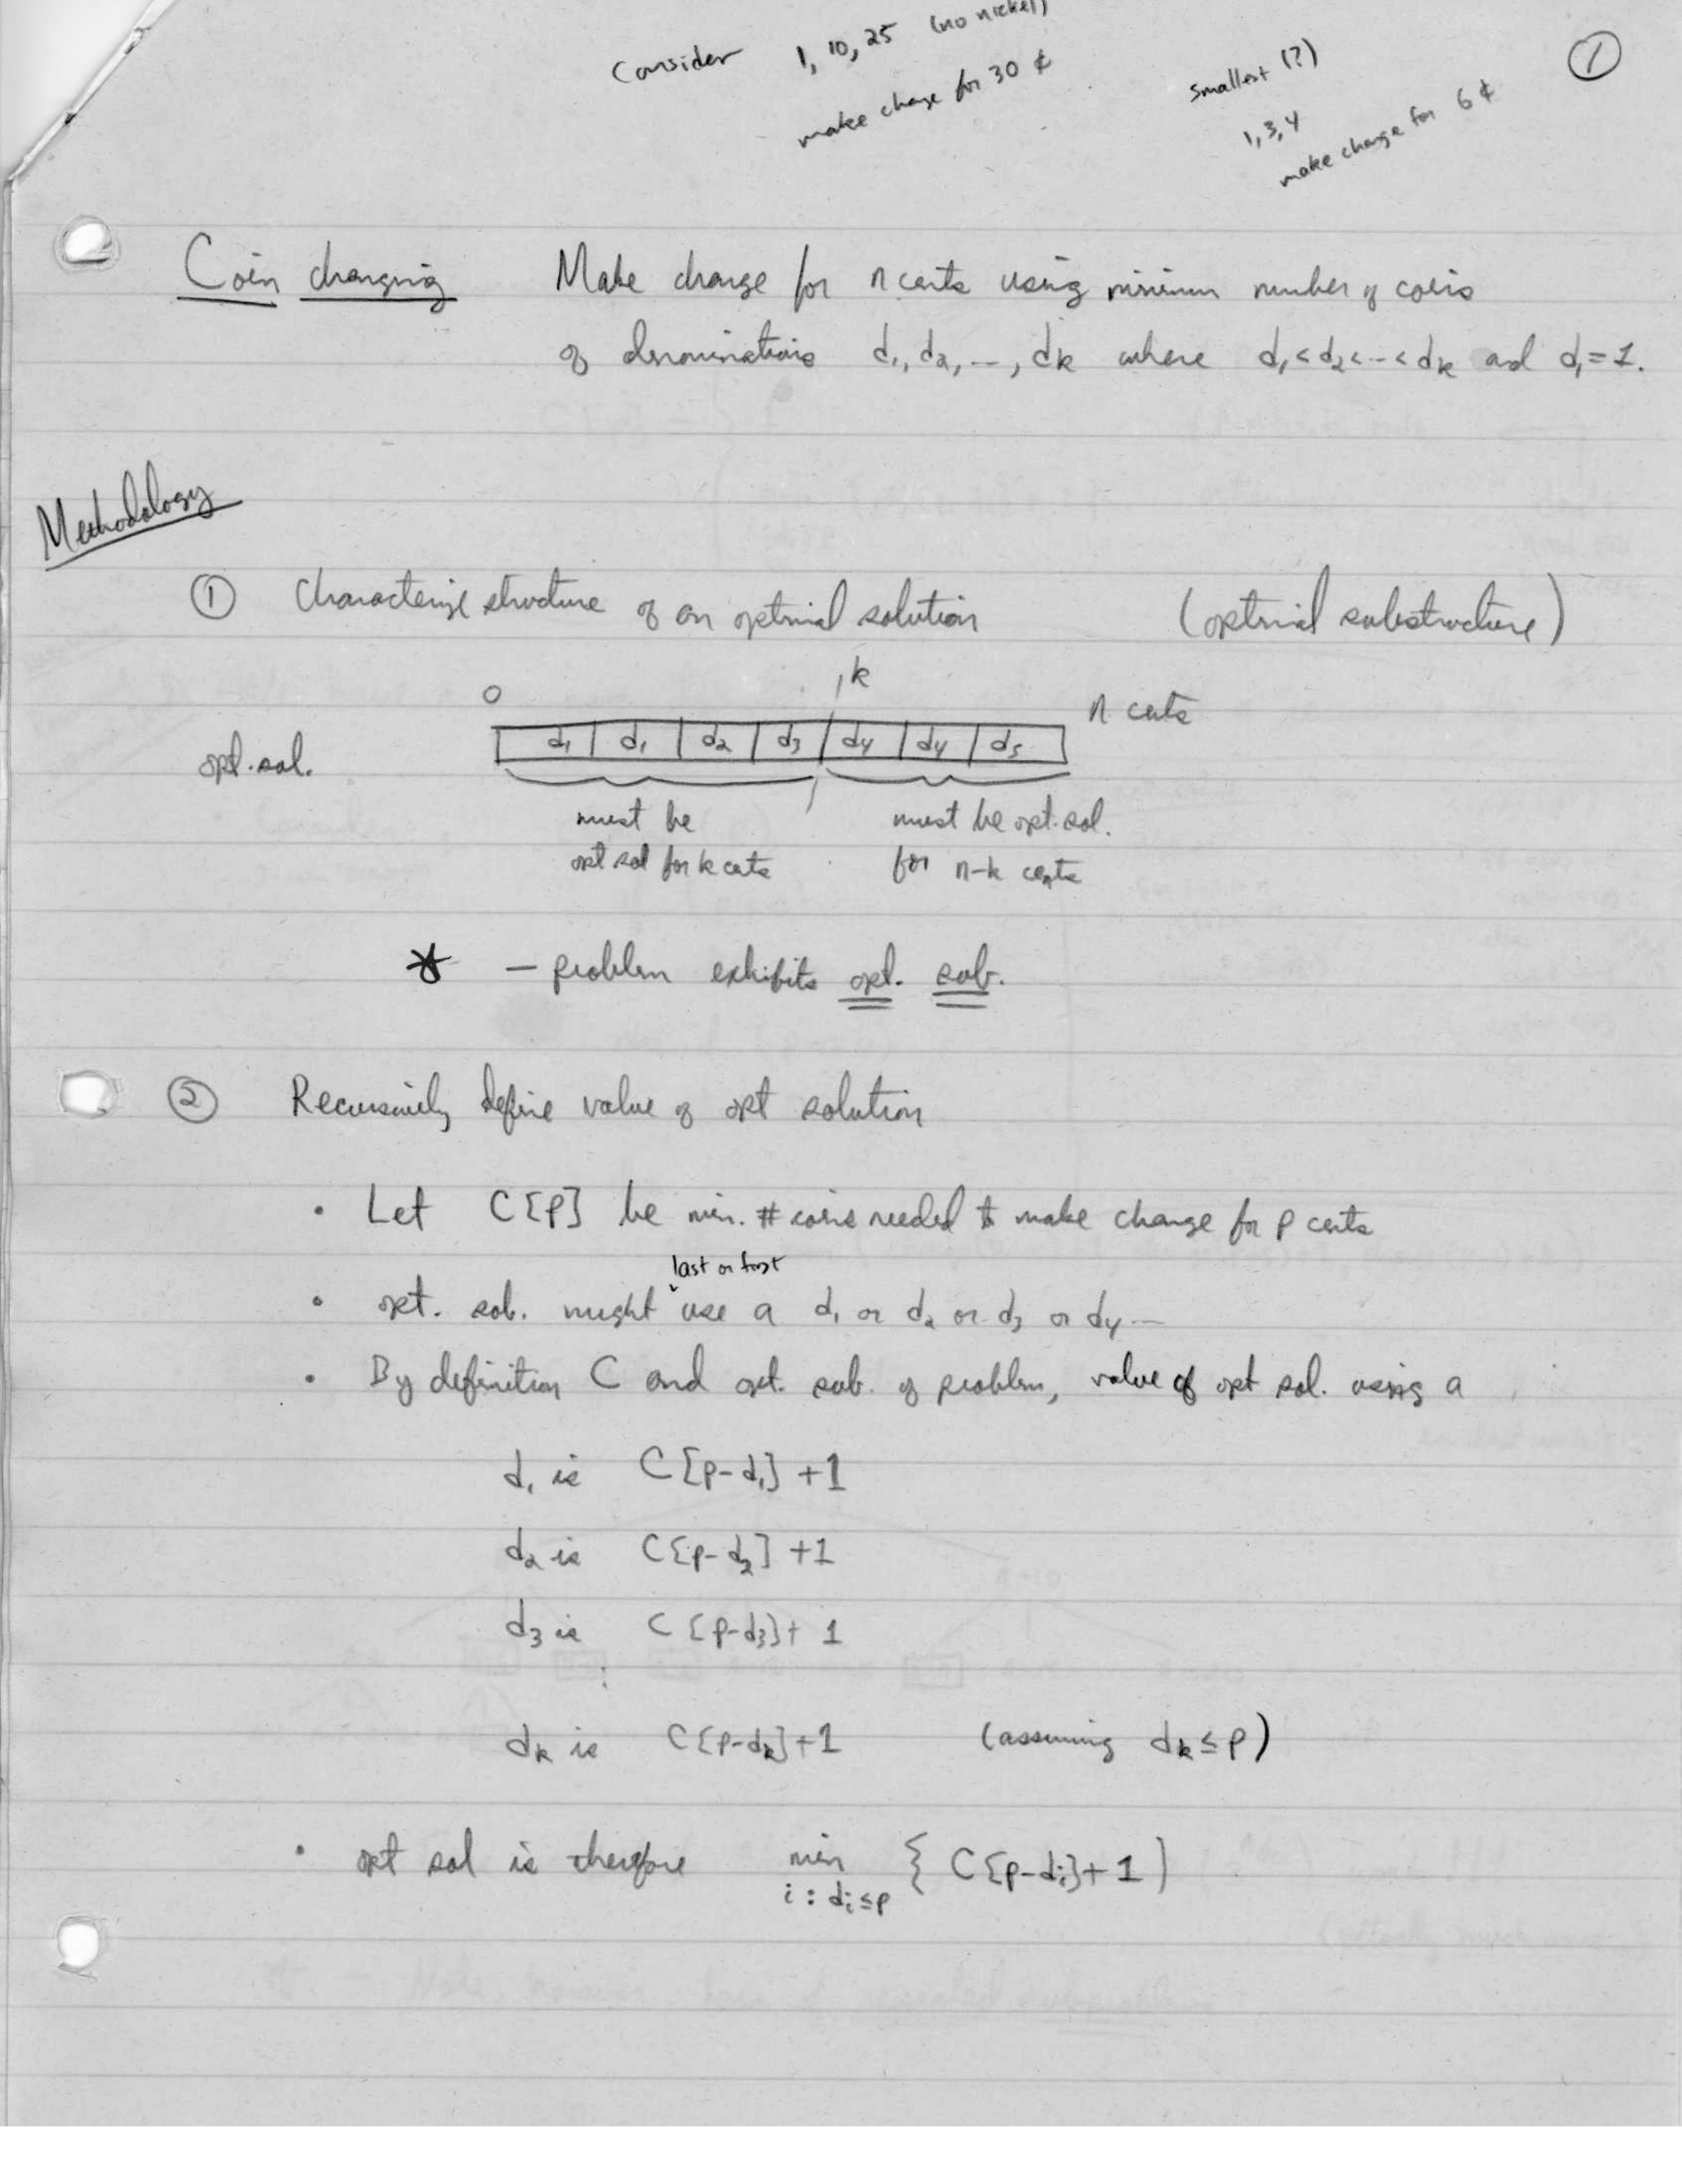 Consider 1, 10, 25 (no nickel)
make change for 30 ¢
smallest (?)
1, 3, 4
make change for 6 ¢
①
Coin changing Make change for n cents using minimum number of coins
of denominations d₁, d₂, ..., dk where d₁ < d₂ < ... < dk and d₁ = 1.
Methodology
① Characterize structure of an optimal solution (optimal substructure)
0 k n cents
opt. sol. d₁ d₁ d₂ d₃ d₄ d₄ d₅
must be must be opt. sol.
opt sol for k cents for n-k cents
* - problem exhibits opt. sub.
② Recursively define value of opt solution
• Let C[p] be min. # coins needed to make change for p cents
last or first
• opt. sol. might use a d₁ or d₂ or d₃ or d₄ ...
• By definition C and opt. sub. of problem, value of opt sol. using a
d₁ is C[p-d₁] + 1
d₂ is C[p-d₂] + 1
d₃ is C[p-d₃] + 1
:
dk is C[p-dk] + 1 (assuming dk ≤ p)
• opt sol is therefore min { C[p-di] + 1 }
i : di ≤ p